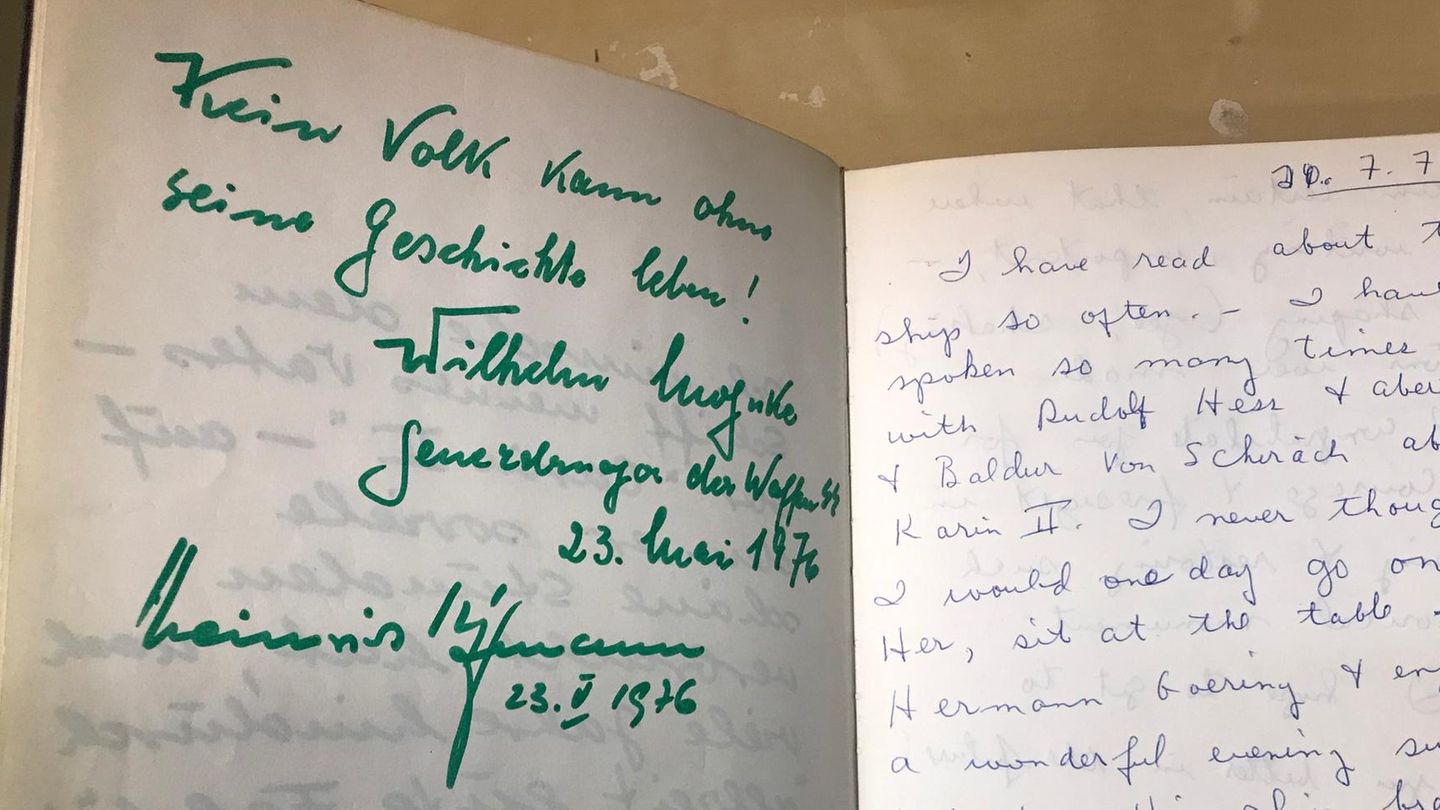 Kein Volk kann ohne
seine Geschichte leben!
Wilhelm Mohnke
Generalmajor der Waffen SS
23. Mai 1976
Heinrich
23. V 1976
20. 7. 7
I have read about t
ship so often. - I have
spoken so many times
with Rudolf Hess &
& Baldur Von Schirach ab
Karin II. I never thoug
I would one day go on
Her, sit at the table
Hermann Goering & en
a wonderful evening su